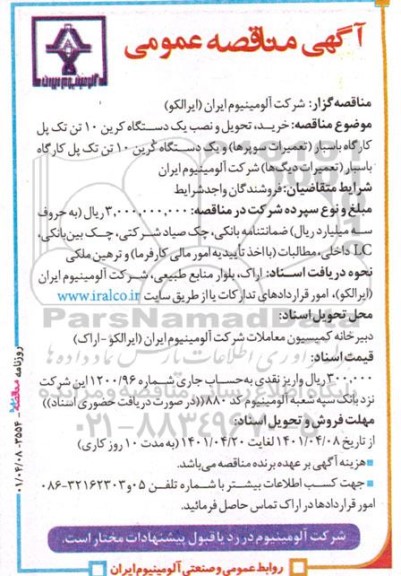 آگهی مناقصه عمومی
آلومینیوم ایران
مناقصه گزار: شرکت آلومینیوم ایران (ایرالکو)
موضوع مناقصه: خرید، تحویل و نصب یک دستگاه کرین ۱۰ تن تک پل
کارگاه باسبار (تعمیرات سوپرها) و یک دستگاه کرین ۱۰ تن تک پل کارگاه
باسبار (تعمیرات دیگ‌ها) شرکت آلومینیوم ایران
شرایط متقاضیان: فروشندگان واجد شرایط
مبلغ و نوع سپرده شرکت در مناقصه: ۳,۰۰۰,۰۰۰,۰۰۰ ریال (به حروف
سه میلیارد ریال) ضمانتنامه بانکی، چک صیاد شرکتی، چک بین‌بانکی،
LC داخلی، مطالبات (با اخذ تأییدیه امور مالی کارفرما) و ترهین ملکی
نحوه دریافت اسناد: اراک، بلوار منابع طبیعی، شرکت آلومینیوم ایران
(ایرالکو)، امور قراردادهای تدارکات یا از طریق سایت www.iralco.ir
محل تحویل اسناد:
دبیرخانه کمیسیون معاملات شرکت آلومینیوم ایران (ایرالکو - اراک)
قیمت اسناد:
۳۰۰,۰۰۰ ریال واریز نقدی به حساب جاری شماره ۱۲۰۰/۹۶ این شرکت
نزد بانک سپه شعبه آلومینیوم کد ۸۸۰ ((در صورت دریافت حضوری اسناد))
مهلت فروش و تحویل اسناد:
از تاریخ ۱۴۰۱/۰۴/۰۸ لغایت ۱۴۰۱/۰۴/۲۰ (به مدت ۱۰ روز کاری)
■ هزینه آگهی بر عهده برنده مناقصه می‌باشد.
■ جهت کسب اطلاعات بیشتر با شماره تلفن ۰۵ و ۳۲۱۶۲۳۰۳-۰۸۶
امور قراردادها در اراک تماس حاصل فرمائید.
شرکت آلومینیوم در رد یا قبول پیشنهادات مختار است.
روابط عمومی و صنعتی آلومینیوم ایران
روزنامه مناقصه - ۳۵۵۴ - ۰۱/۰۴/۰۸
ParsNamadData
۰۲۱-۸۸۳۴۹۶۷۰-۵